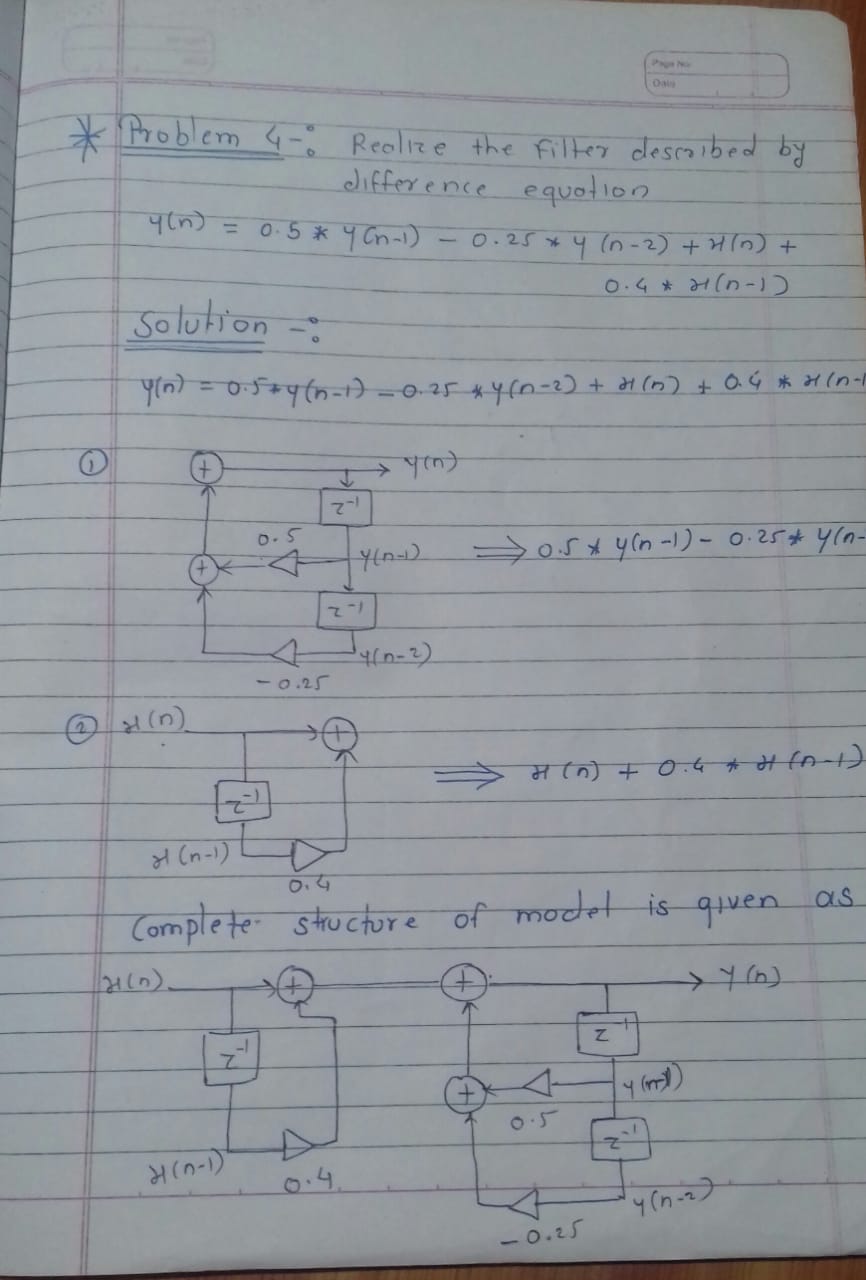 Page No.
Date
* Problem 4 -: Realize the filter described by
difference equation
y(n) = 0.5 * y(n-1) - 0.25 * y(n-2) + x(n) +
0.4 * x(n-1)
Solution -:
y(n) = 0.5 * y(n-1) - 0.25 * y(n-2) + x(n) + 0.4 * x(n-1
① + y(n)
z⁻¹
0.5
+ y(n-1) ⇒ 0.5 * y(n-1) - 0.25 * y(n-
z⁻¹
y(n-2)
-0.25
② x(n) +
⇒ x(n) + 0.4 * x(n-1)
z⁻¹
x(n-1)
0.4
Complete structure of model is given as
x(n) + + y(n)
z⁻¹ z⁻¹
+ y(n-1)
0.5
z⁻¹
x(n-1)
0.4
y(n-2)
-0.25